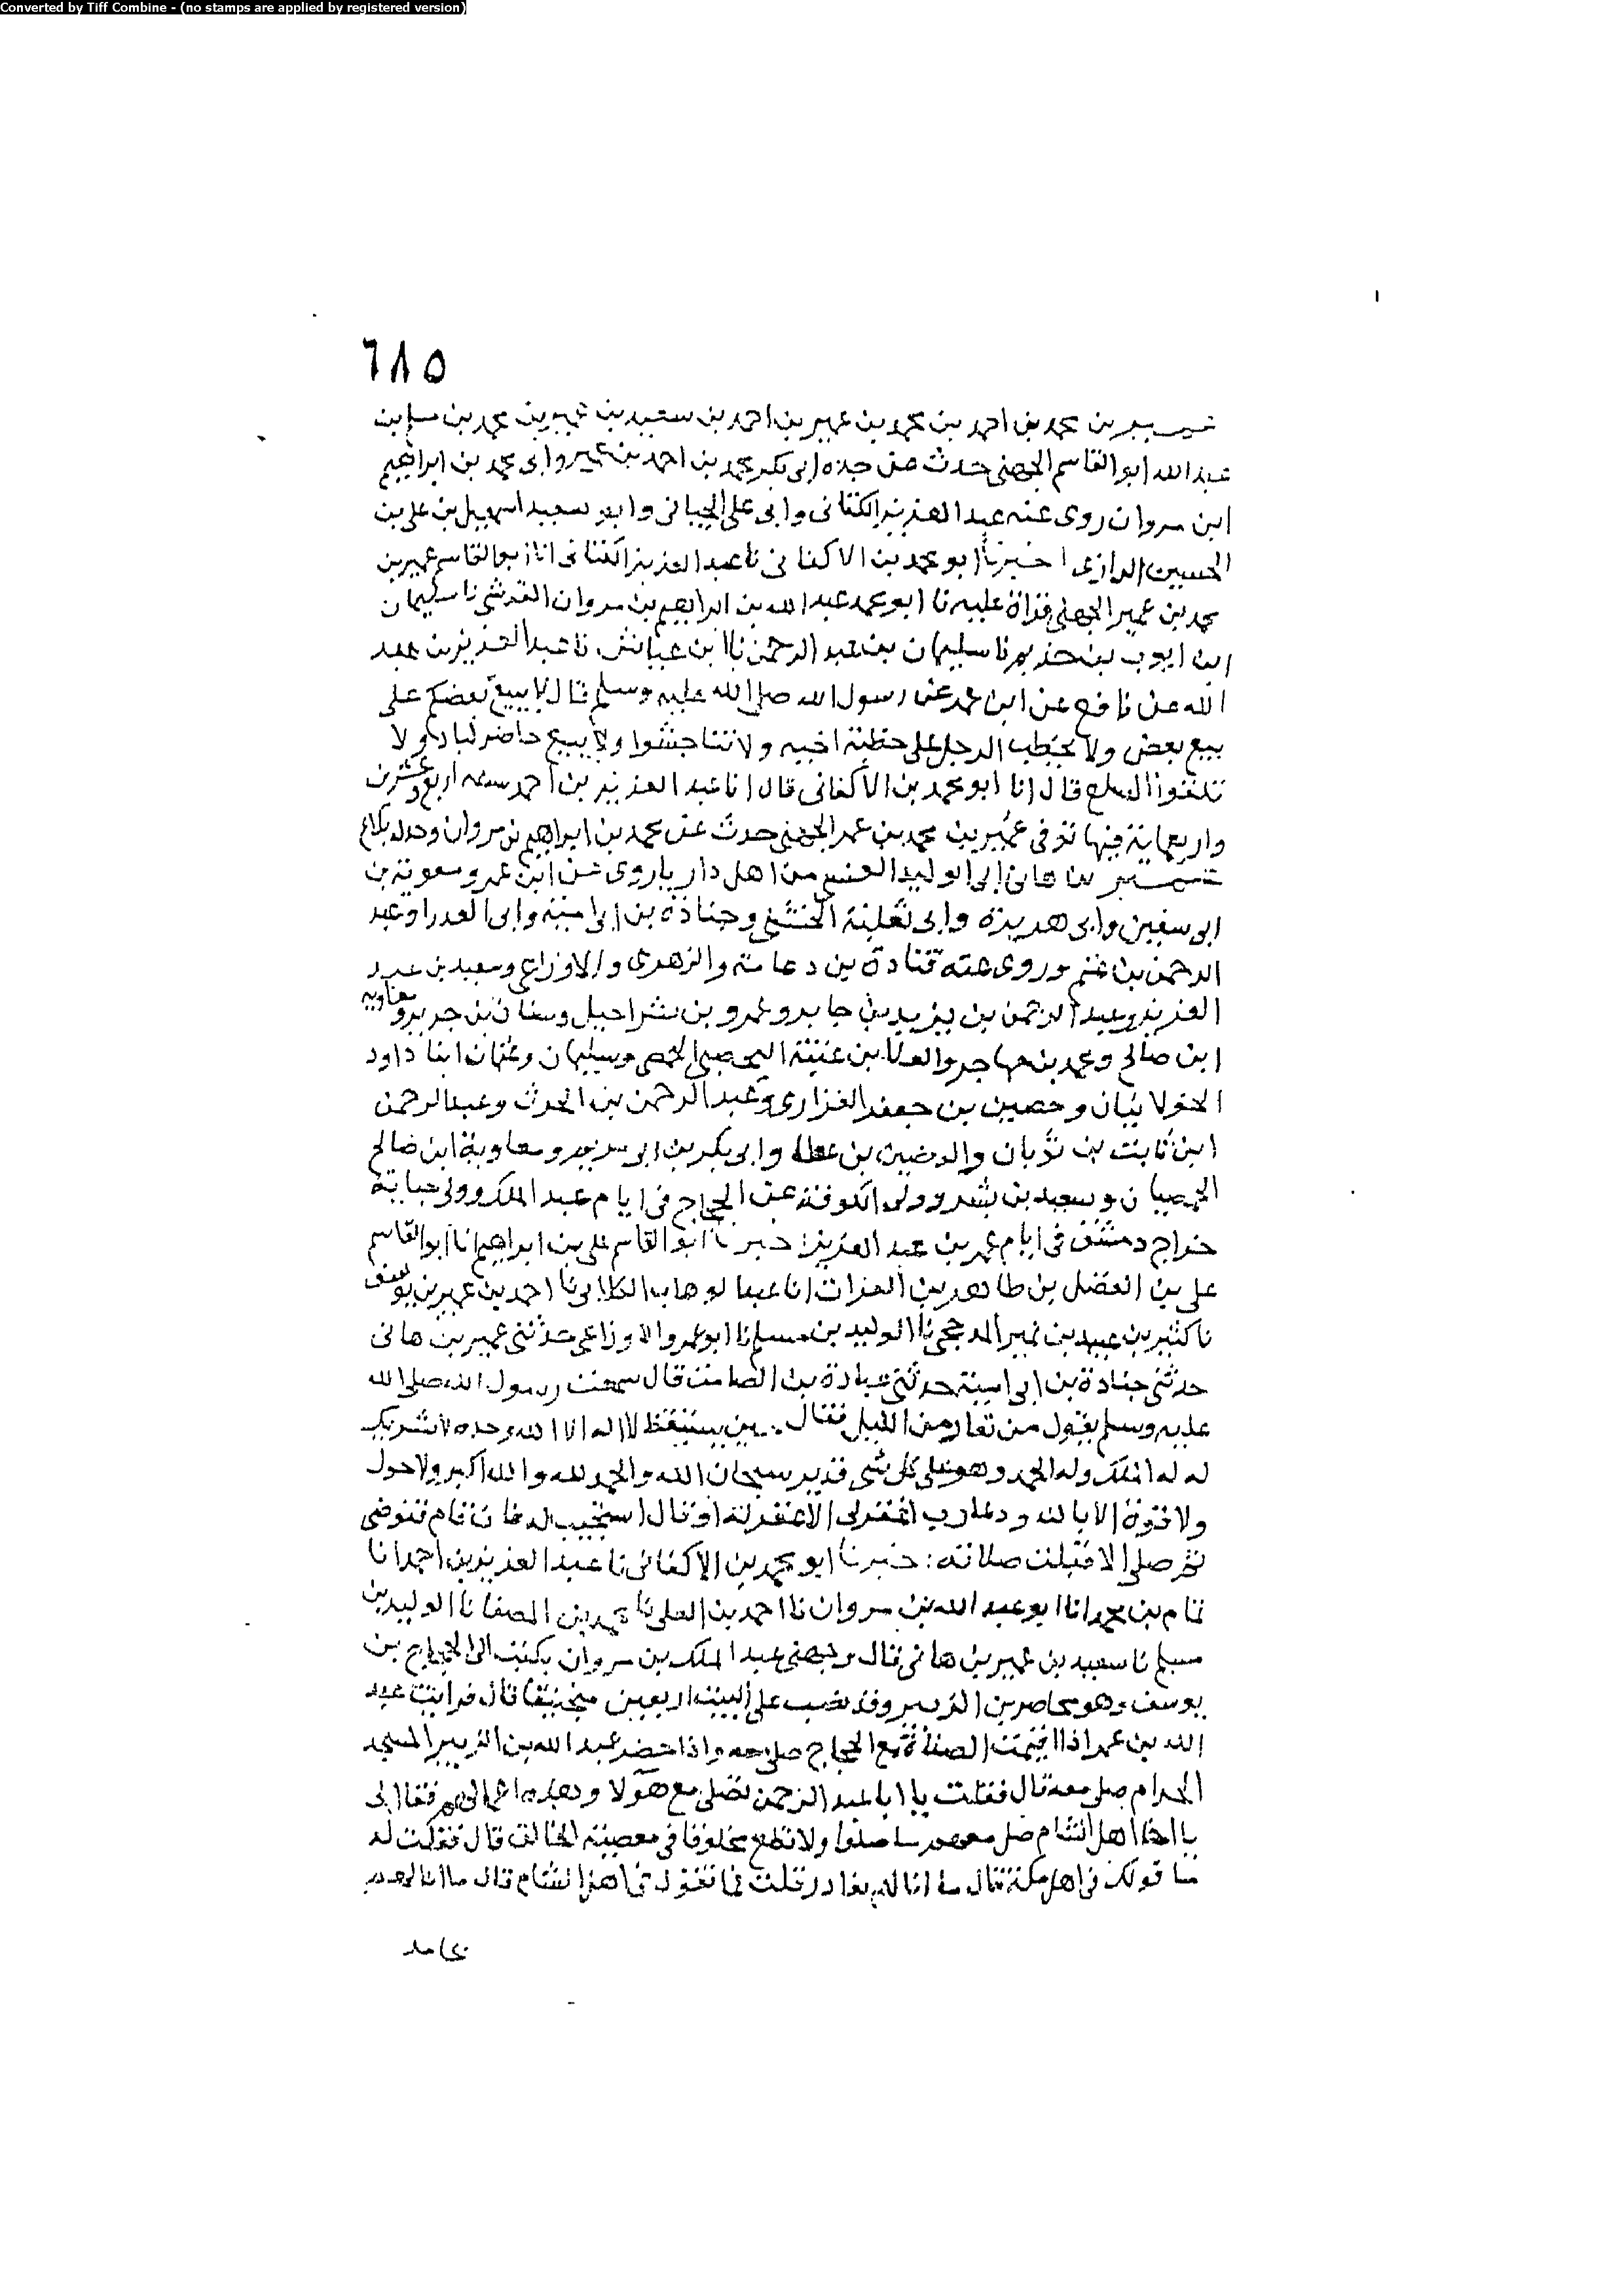 Converted by Tiff Combine - (no stamps are applied by registered version)
٦٨٥
عمير بن محمد بن احمد بن محمد بن عمير بن احمد بن سعيد بن عمير بن محمد بن مسلم بن
عبد الله ابو القاسم الجهني حدث عن جده ابي بكر محمد بن احمد بن عمير وابي محمد بن ابراهيم
ابن مروان روى عنه عبد العزيز الكتاني وابي علي الجياني وابو سعيد اسمعيل بن علي بن
الحسين الرازي اخبرنا ابو محمد بن الاكفاني نا عبد العزيز الكتاني انا ابو القاسم عمير بن
محمد بن عمير الجهني قراة عليه نا ابو محمد عبد الله بن ابراهيم بن مروان القرشي نا سليمان
ابن ايوب بن حذيم نا سليمان بن عبد الرحمن نا ابن عياش نا عبد العزيز بن عبيد
الله عن نافع عن ابن عمر عن رسول الله صلى الله عليه وسلم قال لا يبيع بعضكم على
بيع بعض ولا يخطب الرجل على خطبة اخيه ولا تناجشوا ولا يبيع حاضر لباد ولا
تلقوا السلع قال انا ابو محمد بن الاكفاني قال انا عبد العزيز بن احمد سنة اربع وعشرين
واربعماية فيها توفي عمير بن محمد بن عمر الجهني حدث عن محمد بن ابراهيم بن مروان وجده بكلاع
عمير بن هاني ابي الوليد العنسي من اهل داريا روى عن ابن عمر ومعوية بن
ابي سفين وابي هريرة وابي ثعلبة الخشني وجنادة بن ابي امية وابي العدرا وعبد
الرحمن بن غنم وروى عنه قتادة بن دعامة والزهري والاوزاعي وسعيد بن عبد
العزيز وعبد الرحمن بن يزيد بن جابر وعمرو بن شراحيل وسنان بن جرير ومعاوية
ابن صالح ومحمد بن مهاجر والعلا بن عتبة اليحصبي الحمصي وسليمان وعثمان ابنا داود
الخولانيان وحصين بن جعفر الفزاري وعبد الرحمن بن الحرث وعبد الرحمن
ابن ثابت بن ثوبان والوضين بن عطا وابي بكر بن ابي مريم ومعاوية ابن صالح
الحمصيان وسعيد بن بشر وولي الكوفة عن الحجاج في ايام عبد الملك وولي جباية
خراج دمشق في ايام عمر بن عبد العزيز: خبرنا ابو القاسم علي بن ابراهيم انا ابو القاسم
علي بن الفضل بن طاهر بن الفرات انا عبد الوهاب الكلابي نا احمد بن عمير بن يوسف
نا كثير بن عبيد بن نمير المدحجي نا الوليد بن مسلم نا ابو عمرو الاوزاعي حدثني عمير بن هاني
حدثني جنادة بن ابي امية حدثني عبادة بن الصامت قال سمعت رسول الله صلى الله
عليه وسلم يقول من تعار من الليل فقال حين يستيقظ لا اله الا الله وحده لا شريك
له له الملك وله الحمد وهو على كل شي قدير سبحان الله والحمد لله والله اكبر ولا حول
ولا قوة الا بالله ودعا رب اغفر لي الا غفر له او قال استجيب له فان قام فتوضى
ثم صلى الا قبلت صلاته: خبرنا ابو محمد بن الاكفاني نا عبد العزيز بن احمد انا
تمام بن محمد انا ابو عبد الله بن مروان نا احمد بن المعلى نا محمد بن المصفا نا الوليد بن
مسلم نا سعيد بن عمير بن هاني قال وجهني عبد الملك بن مروان بكتب الى الحجاج بن
يوسف وهو محاصر بن الزبير وقد نصب على البيت اربعين منجنيقا قال فرايت عبد
الله بن عمر اذا اقيمت الصلاة مع الحجاج صلى معه واذا حضر عبد الله بن الزبير المسجد
الحرام صلى معه قال فقلت يا ابا عبد الرحمن تصلي مع هولا وهذه اعمالهم فقال لي
يا اخا اهل الشام صل معهم ما صلوا ولا تطع مخلوقا في معصية الخالق قال فقلت له
ما قولك في اهل مكة قال ما انا لهم بعاذر قلت فما تقول في اهل الشام قال ما انا لهم
بحامد